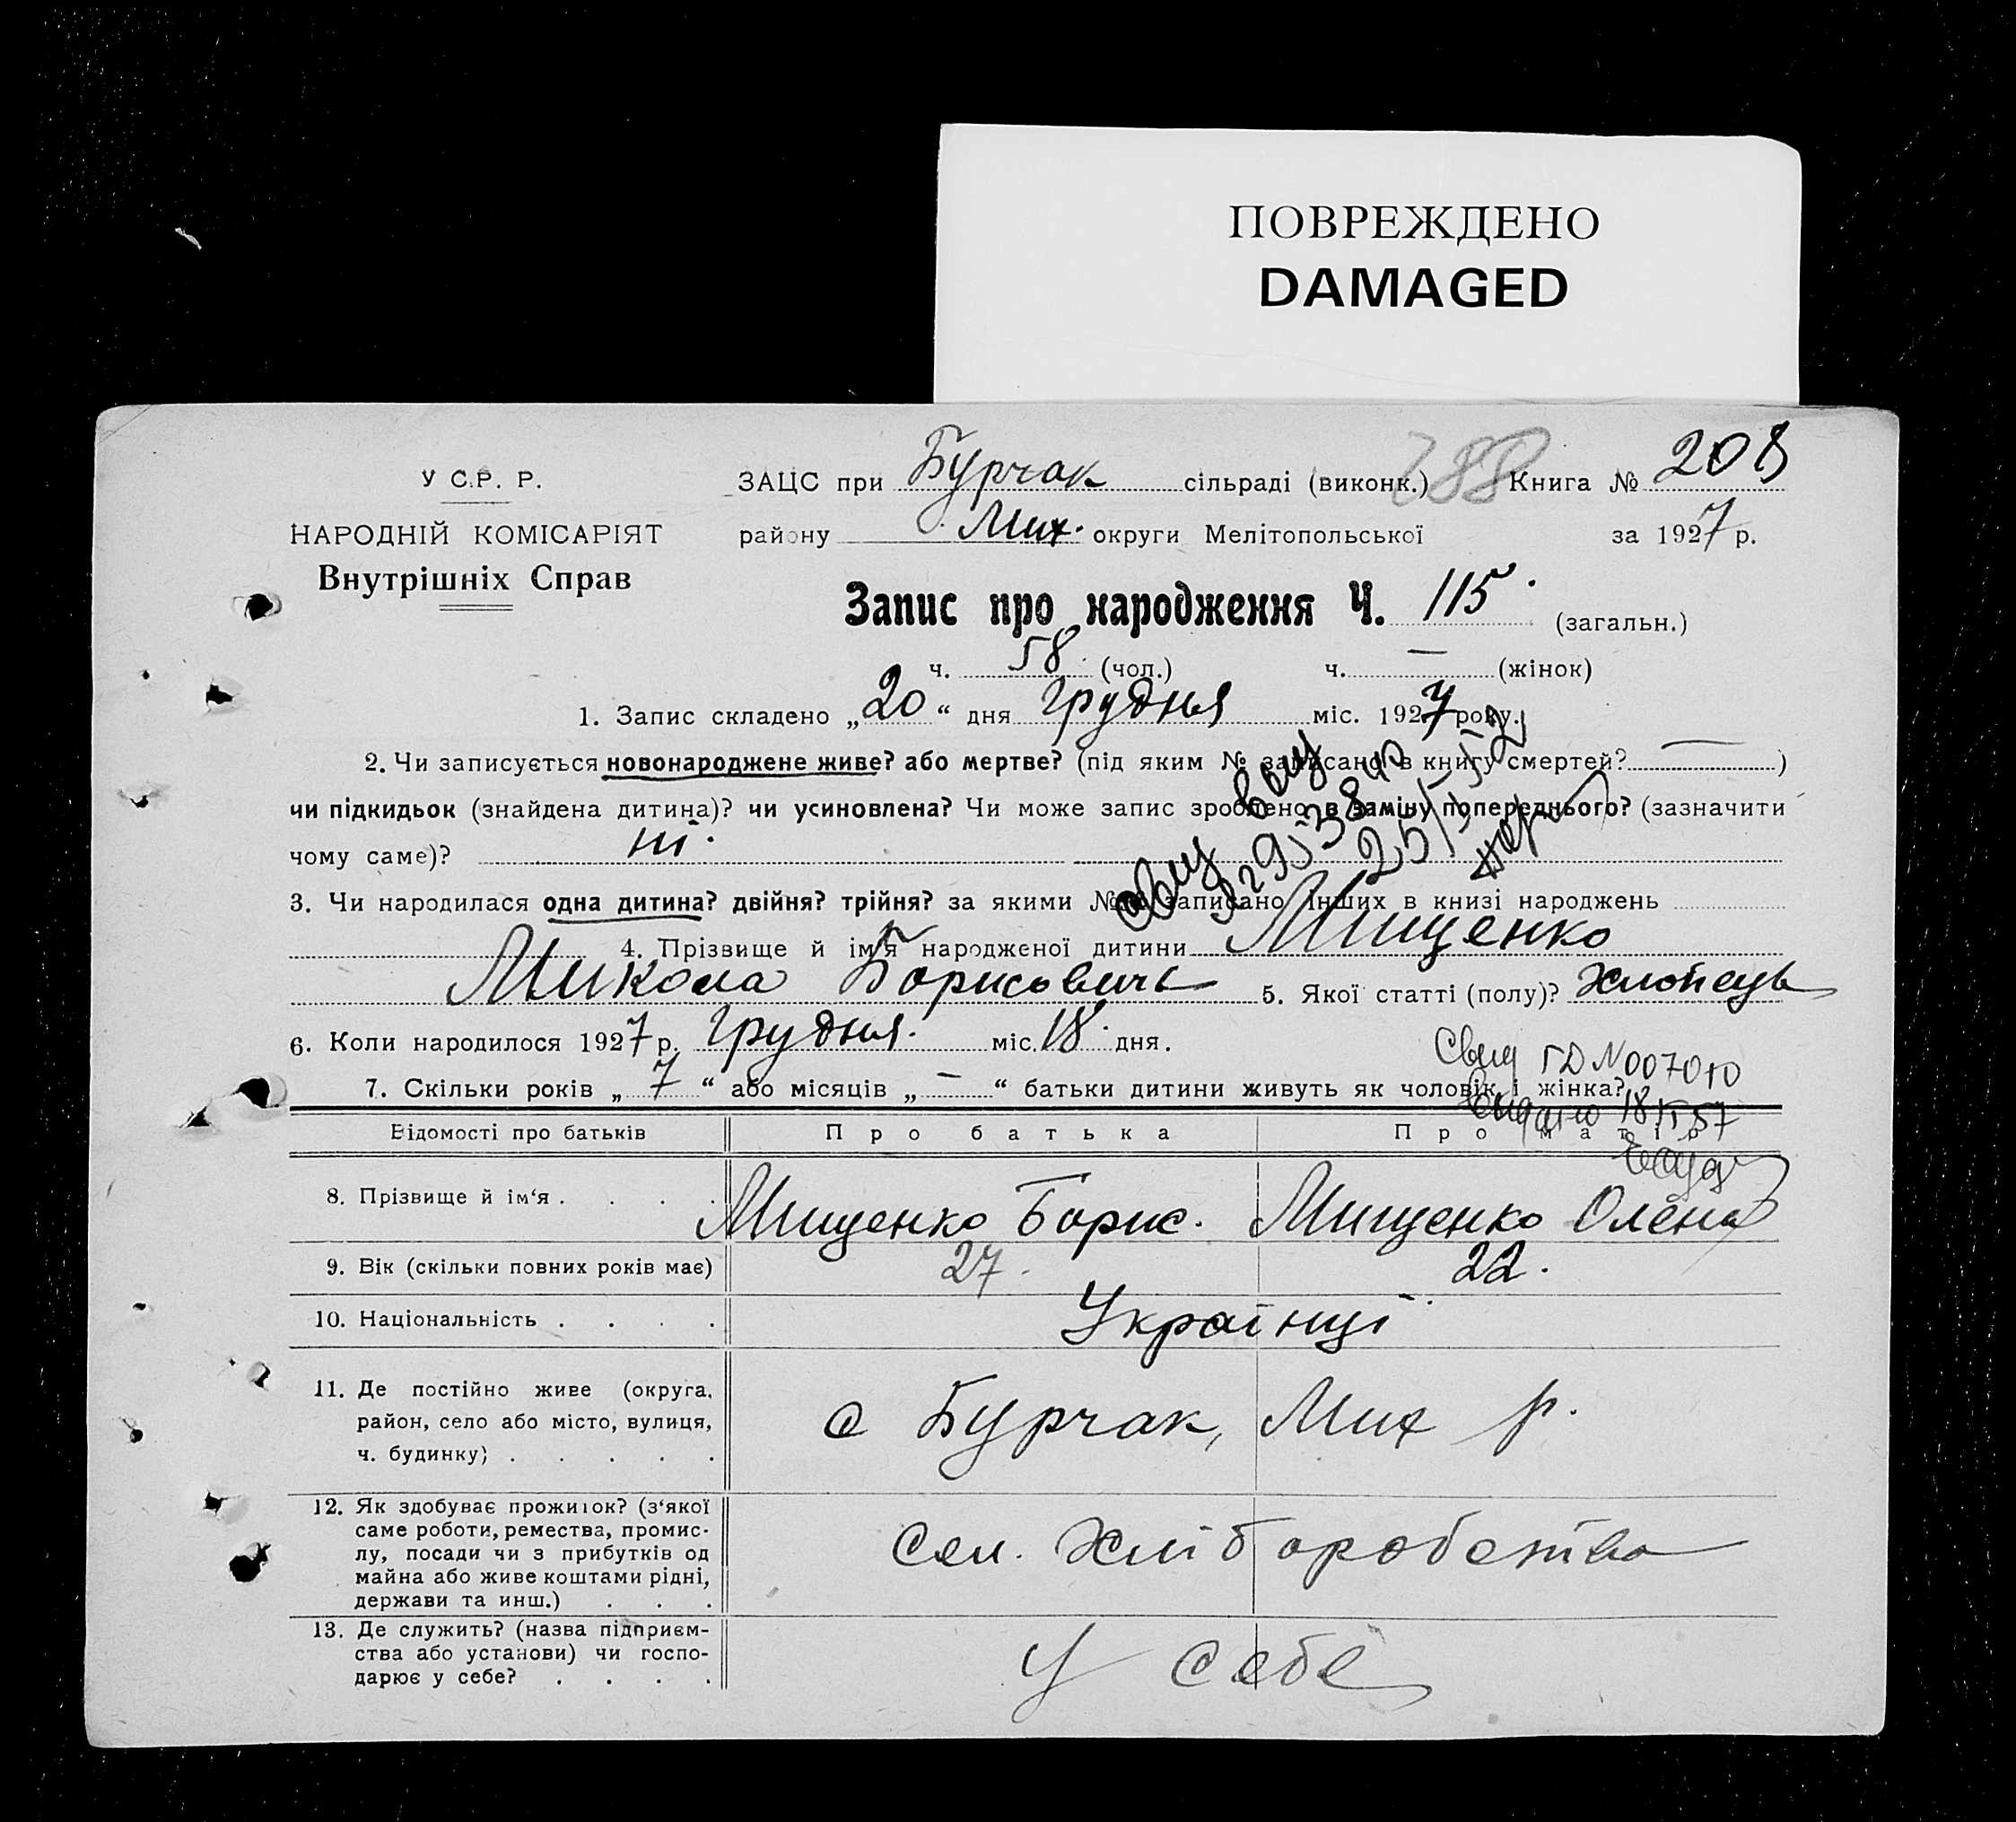 ПОВРЕЖДЕНО
DAMAGED
У С.Р. Р.
НАРОДНІЙ КОМІСАРІЯТ
Внутрішніх Справ
ЗАЦС при Бурчак сільраді (виконк.) 288 Книга № 208
району Мих. округи Мелітопольської за 1927 р.
Запис про народження Ч. 115. (загальн.)
ч. 58. (чол.) ч. — (жінок)
1. Запис складено „20“ дня Грудня міс. 1927 року.
2. Чи записується новонароджене живе? або мертве? (під яким № записано в книгу смертей? — )
чи підкидьок (знайдена дитина)? чи усиновлена? Чи може запис зроблено в заміну попереднього? (зазначити
чому саме)? ні.
3. Чи народилася одна дитина? двійня? трійня? за якими №№ записано інших в книзі народжень
4. Прізвище й ім'я народженої дитини Мищенко
Микола Борисовичь 5. Якої статті (полу)? Хлопець
6. Коли народилося 1927 р. Грудня. міс. 18. дня.
7. Скільки років „ 7 “ або місяців „ — “ батьки дитини живуть як чоловік і жінка?
Свид ГД N 007010
Видано 18 57
Відомості про батьків Про батька Про матір
8. Прізвище й ім‘я . . . . Мищенко Борис. Мищенко Олена
9. Вік (скільки повних років має) 27. 22.
10. Національність . . . . Українці
11. Де постійно живе (округа,
район, село або місто, вулиця,
ч. будинку) . . . . .
с Бурчак, Мих р.
12. Як здобуває прожиток? (з‘якої
саме роботи, ремества, промис-
лу, посади чи з прибутків од
майна або живе коштами рідні,
держави та инш.) . . .
Сел. Хліборобство
13. Де служить? (назва підприєм-
ства або установи) чи госпо-
дарює у себе? . . . .
У себе